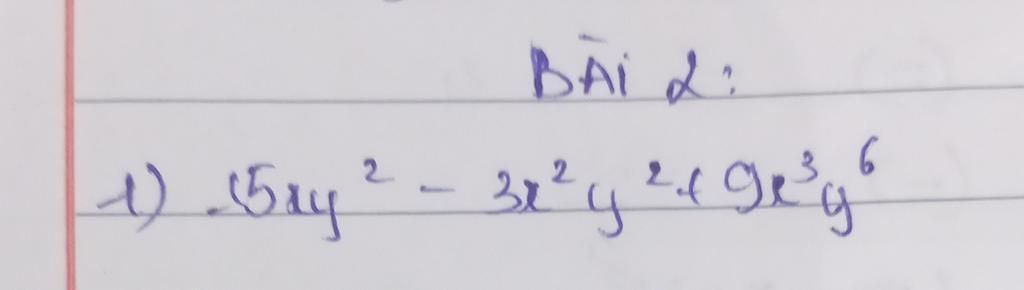 BÀI 2:
1) 15xy² - 3x²y² + 9x³y⁶